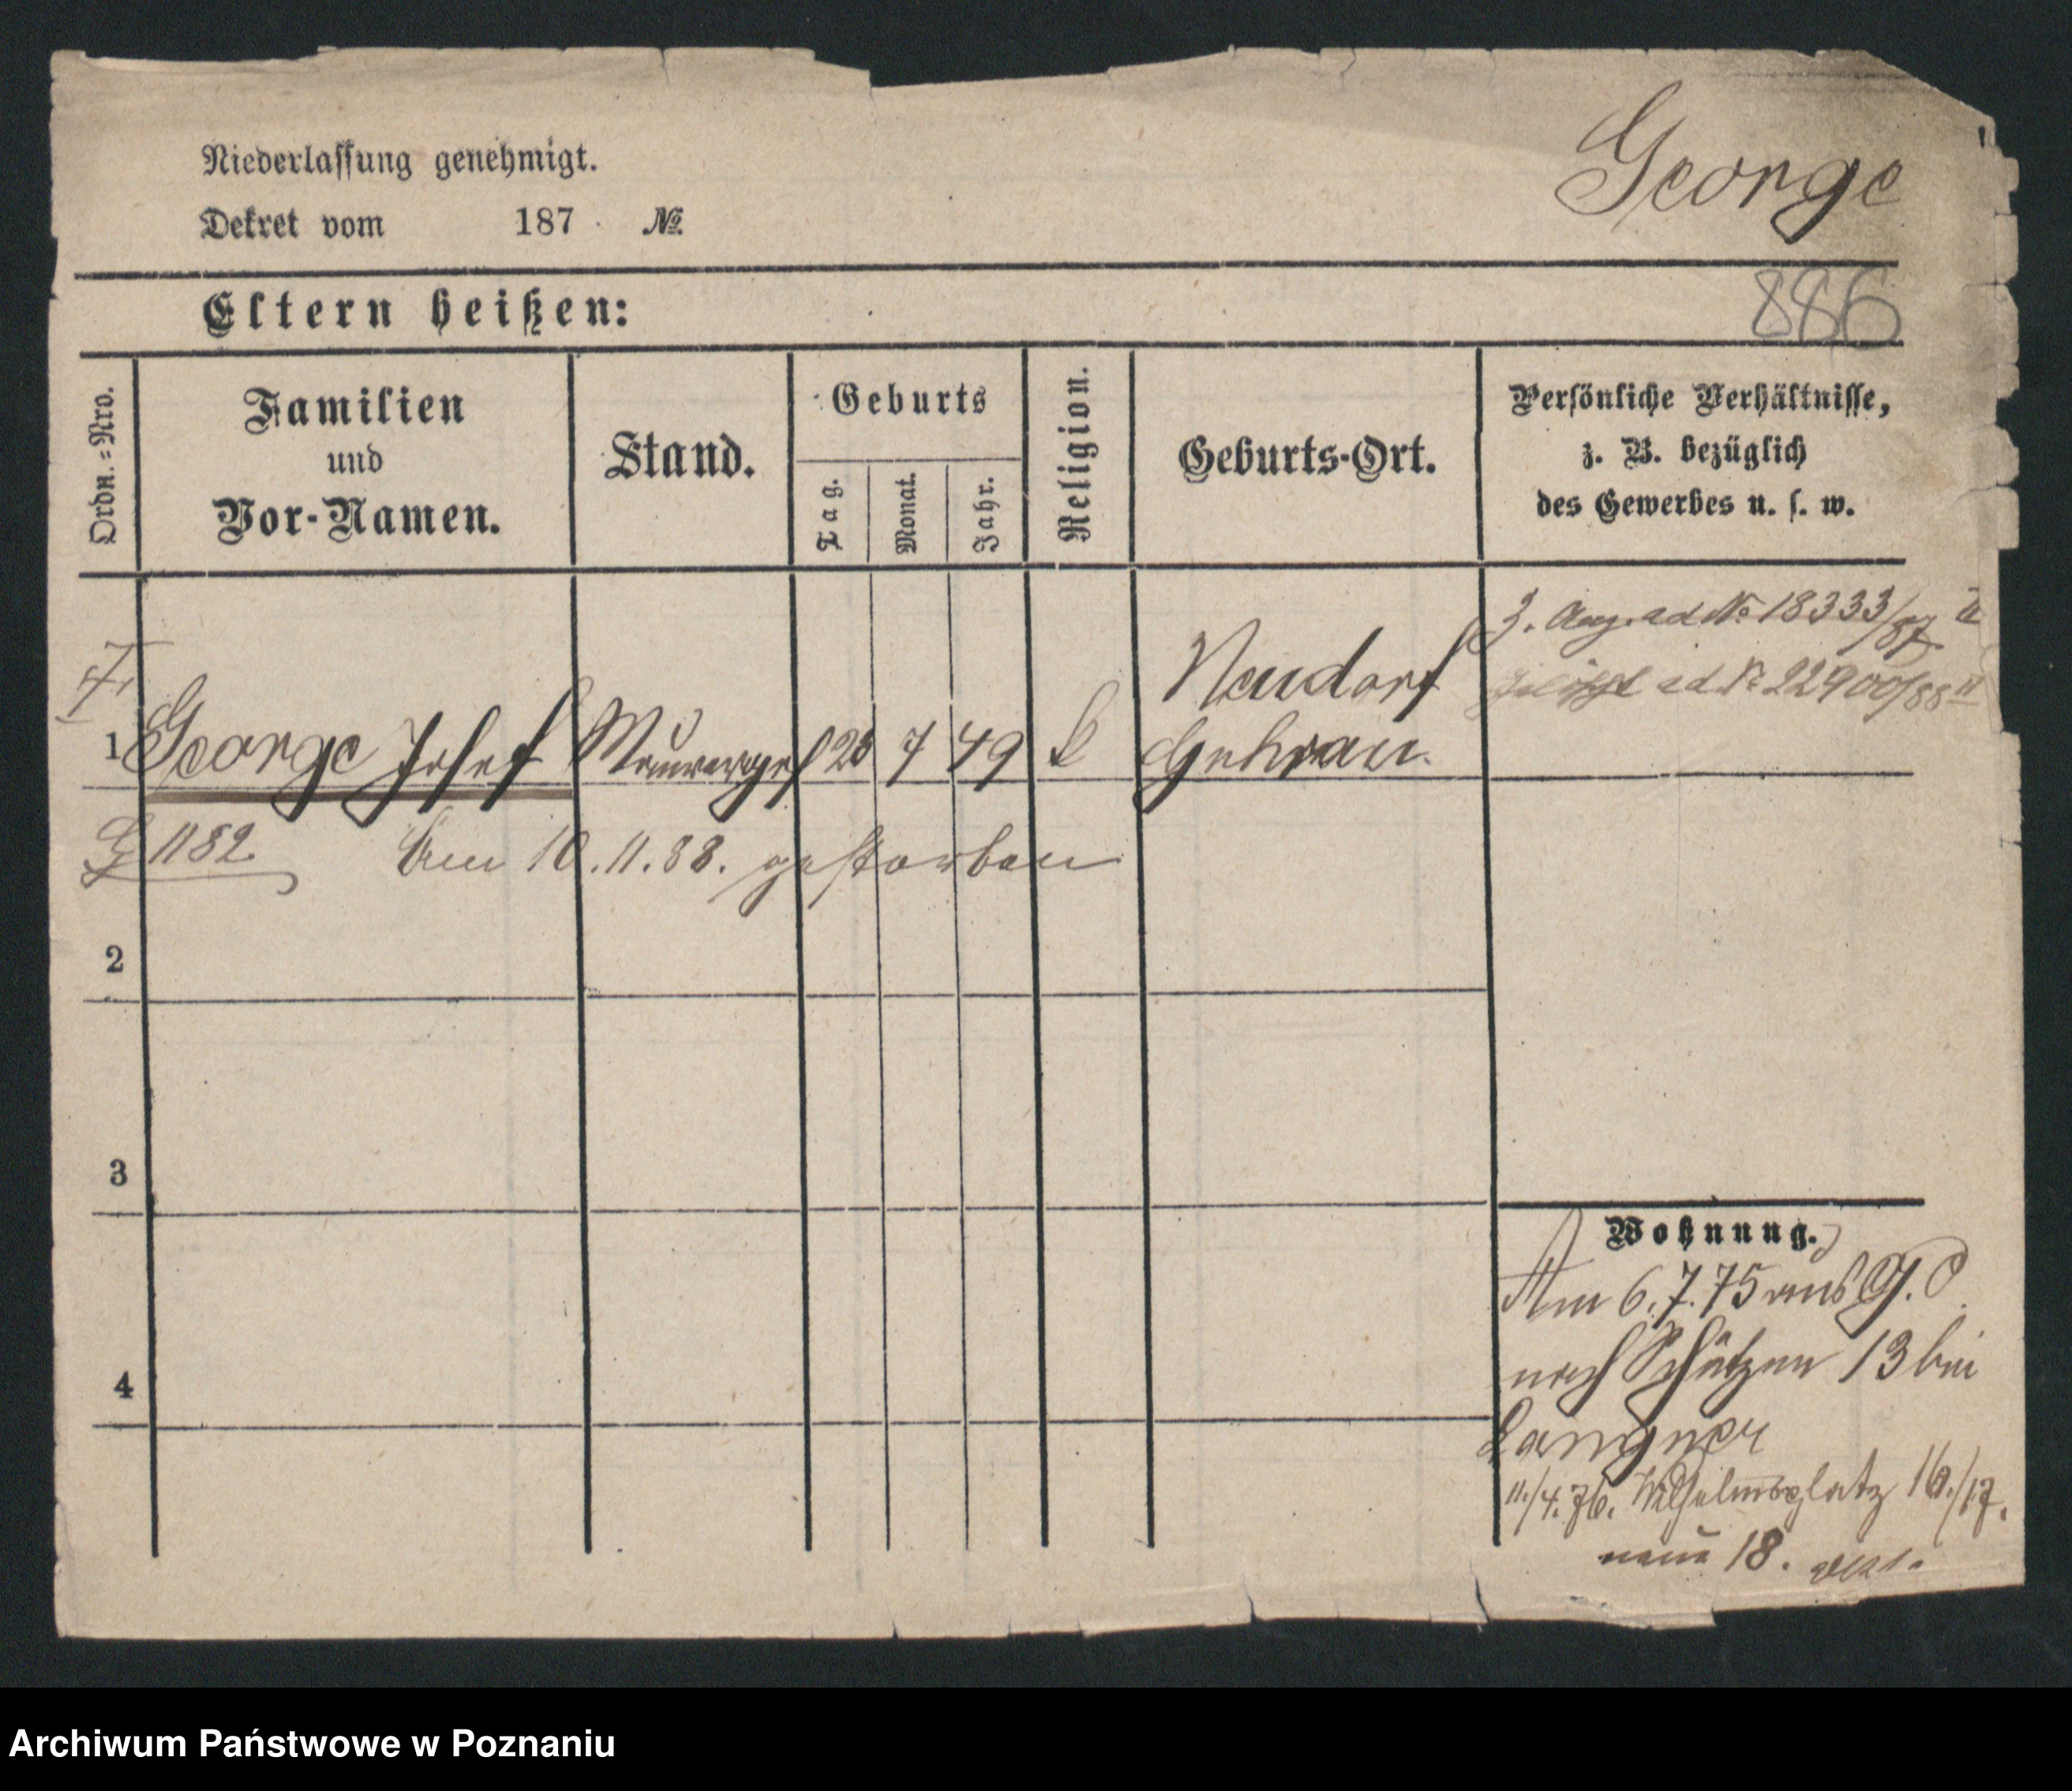 Niederlassung genehmigt.
George
Dekret vom 187 . №
Eltern heißen:
886
Ordn.=Nro.
Familien
und
Vor-Namen.
Stand.
Geburts
Tag.
Monat.
Jahr.
Religion.
Geburts-Ort.
Persönliche Verhältnisse,
z. B. bezüglich
des Gewerbes u. s. w.
ad No 18333/87
ad No 22900/88
1 George Josef Maurergs 25 7 49 k Neudorf
Guhrau.
1182 Am 10.11.88. gestorben
2
3
4
Wohnung.
Am 6.7.75 aus G. D
nach Schützen 13 bei
Langner
11./4.76. Wilhelmsplatz 16./17.
neue 18.
Archiwum Państwowe w Poznaniu